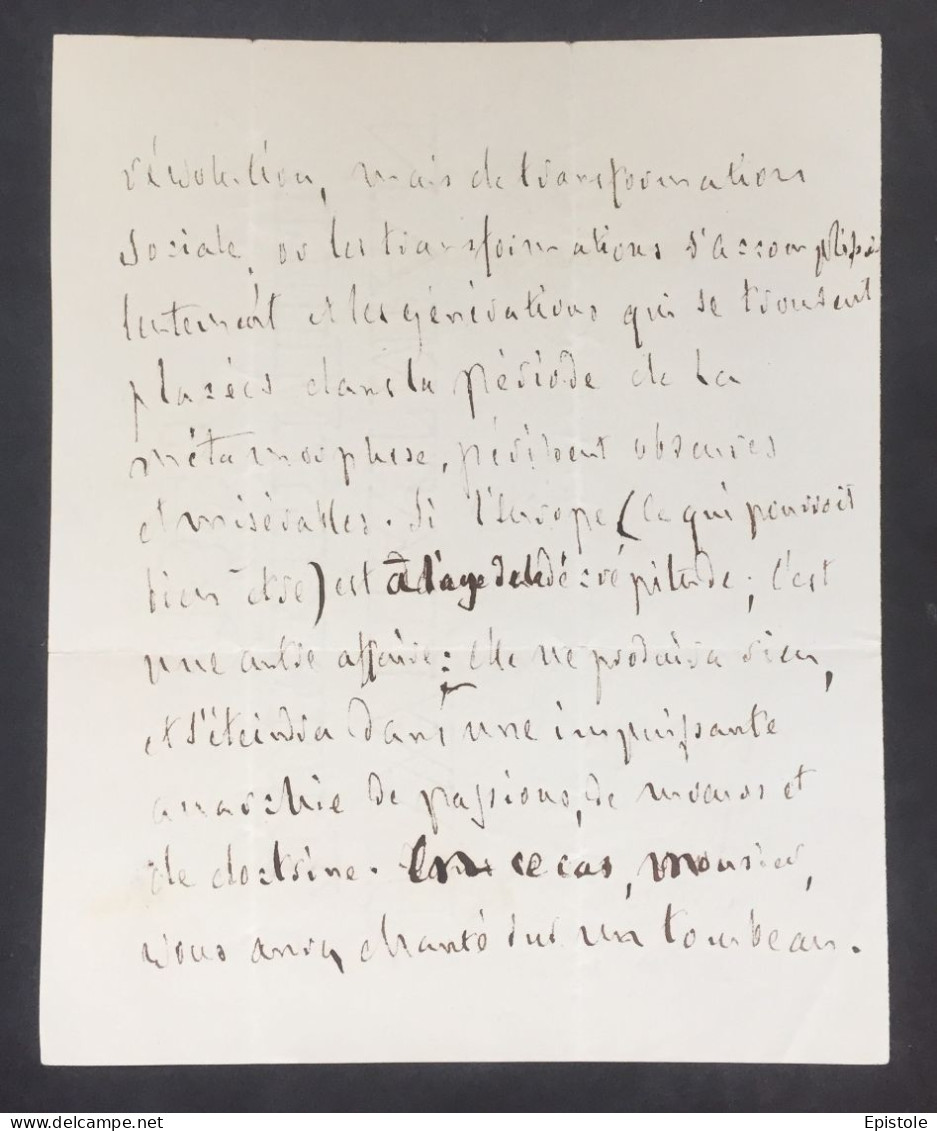 révolution, mais de transformation
sociale, où les transformations s'accomplissent
lentement et les générations qui se trouvent
placées dans la période de la
métamorphose, périssent obscures
et misérables. Si l'Europe (ce qui pourroit
bien être) est à l'age de la décrépitude, c'est
une autre affaire: elle ne produira rien,
et s'éteindra dans une impuissante
anarchie de passions, de mœurs et
de doctrine. Dans ce cas, monsieur,
vous aurez chanté sur un tombeau.
Epistole